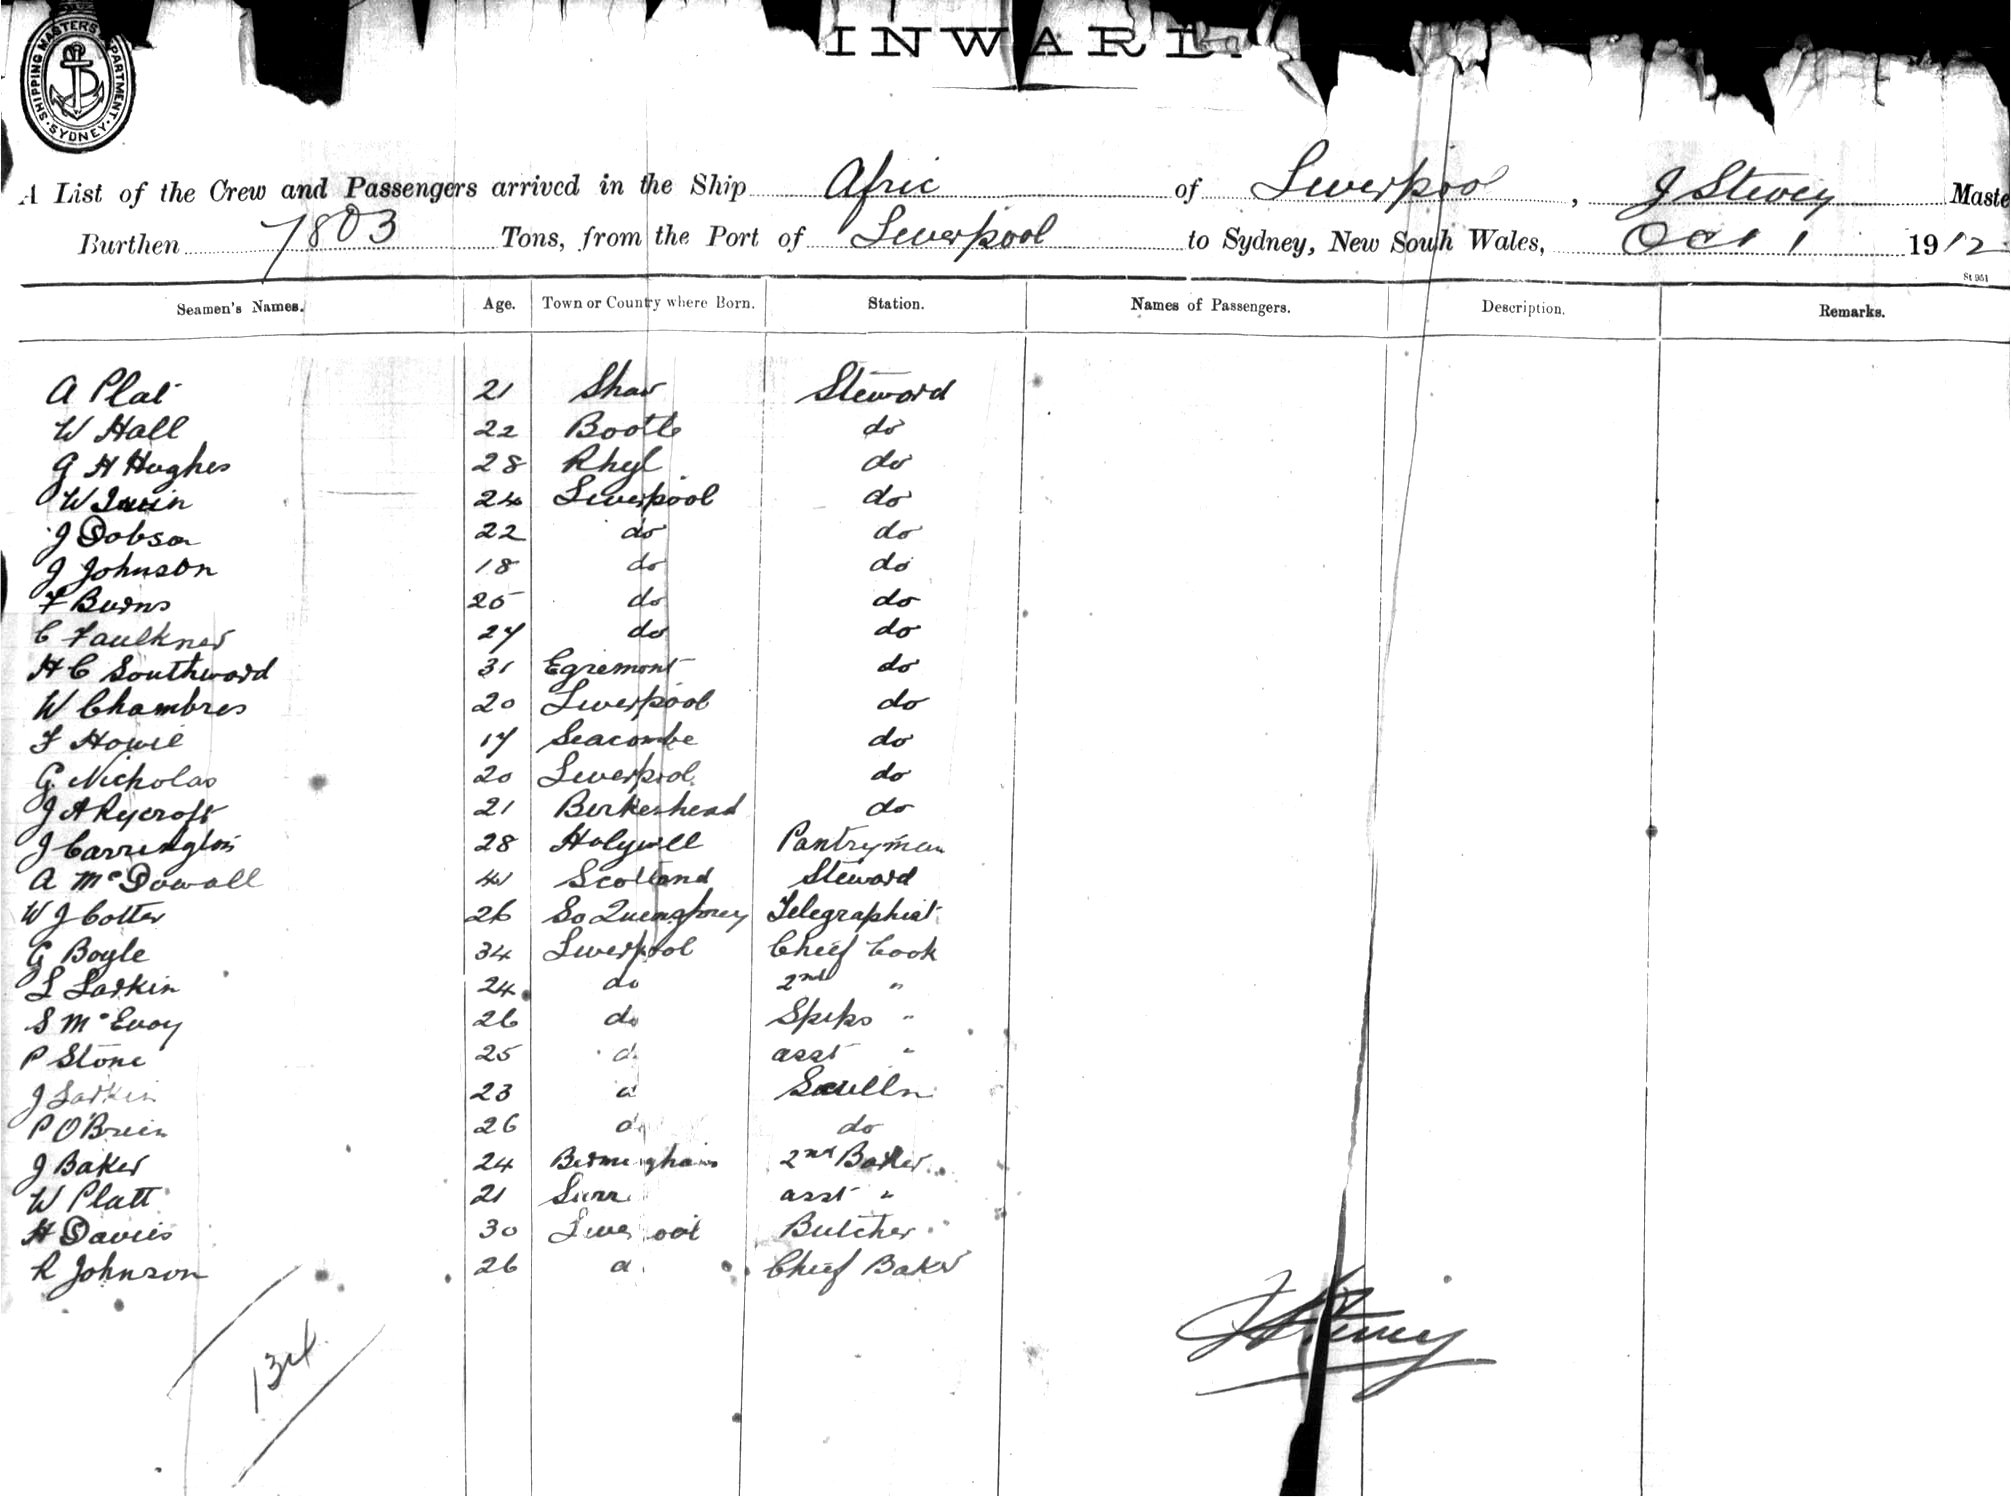 SHIPPING MASTERS DEPARTMENT · SYDNEY ·
INWARD.
A List of the Crew and Passengers arrived in the Ship Afric of Liverpool, J Stivey Maste
Burthen 7803 Tons, from the Port of Liverpool to Sydney, New South Wales, Oct 1 1912
St 951
Seamen's Names. Age. Town or Country where Born. Station. Names of Passengers. Description. Remarks.
A Plat 21 Shaw Steward
W Hall 22 Bootle do
G H Hughes 28 Rhyl do
W 24 Liverpool do
J Dobson 22 do do
J Johnson 18 do do
F Burns 25 do do
C Faulkner 27 do do
H C Southward 31 Egremont do
W Chambres 20 Liverpool do
F Howie 17 Seacombe do
G Nicholas 20 Liverpool do
J A Rycroft 21 Birkenhead do
J Carrington 28 Holywell Pantryman
A McDowall 41 Scotland Steward
W J Cotter 26 So Telegraphist
G Boyle 34 Liverpool Chief Cook
L Larkin 24 do 2nd "
S McEvoy 26 do Ships "
P Stone 25 d asst "
J Larkin 23 d Sculln
P O'Brien 26 d do
J Baker 24 Birmingham 2nd Baker
W Platt 21 Surr asst "
H Davies 30 Liverpool Butcher
R Johnson 26 d Chief Baker
J Stivey
134